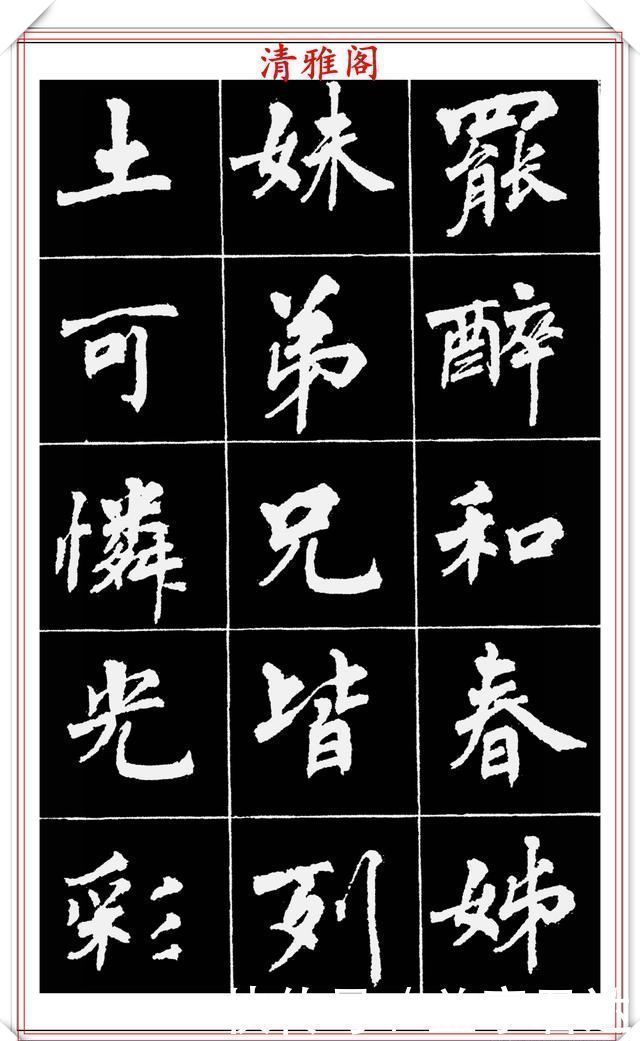 清雅阁
罷醉和春姊
妹弟兄皆列
土可憐光彩